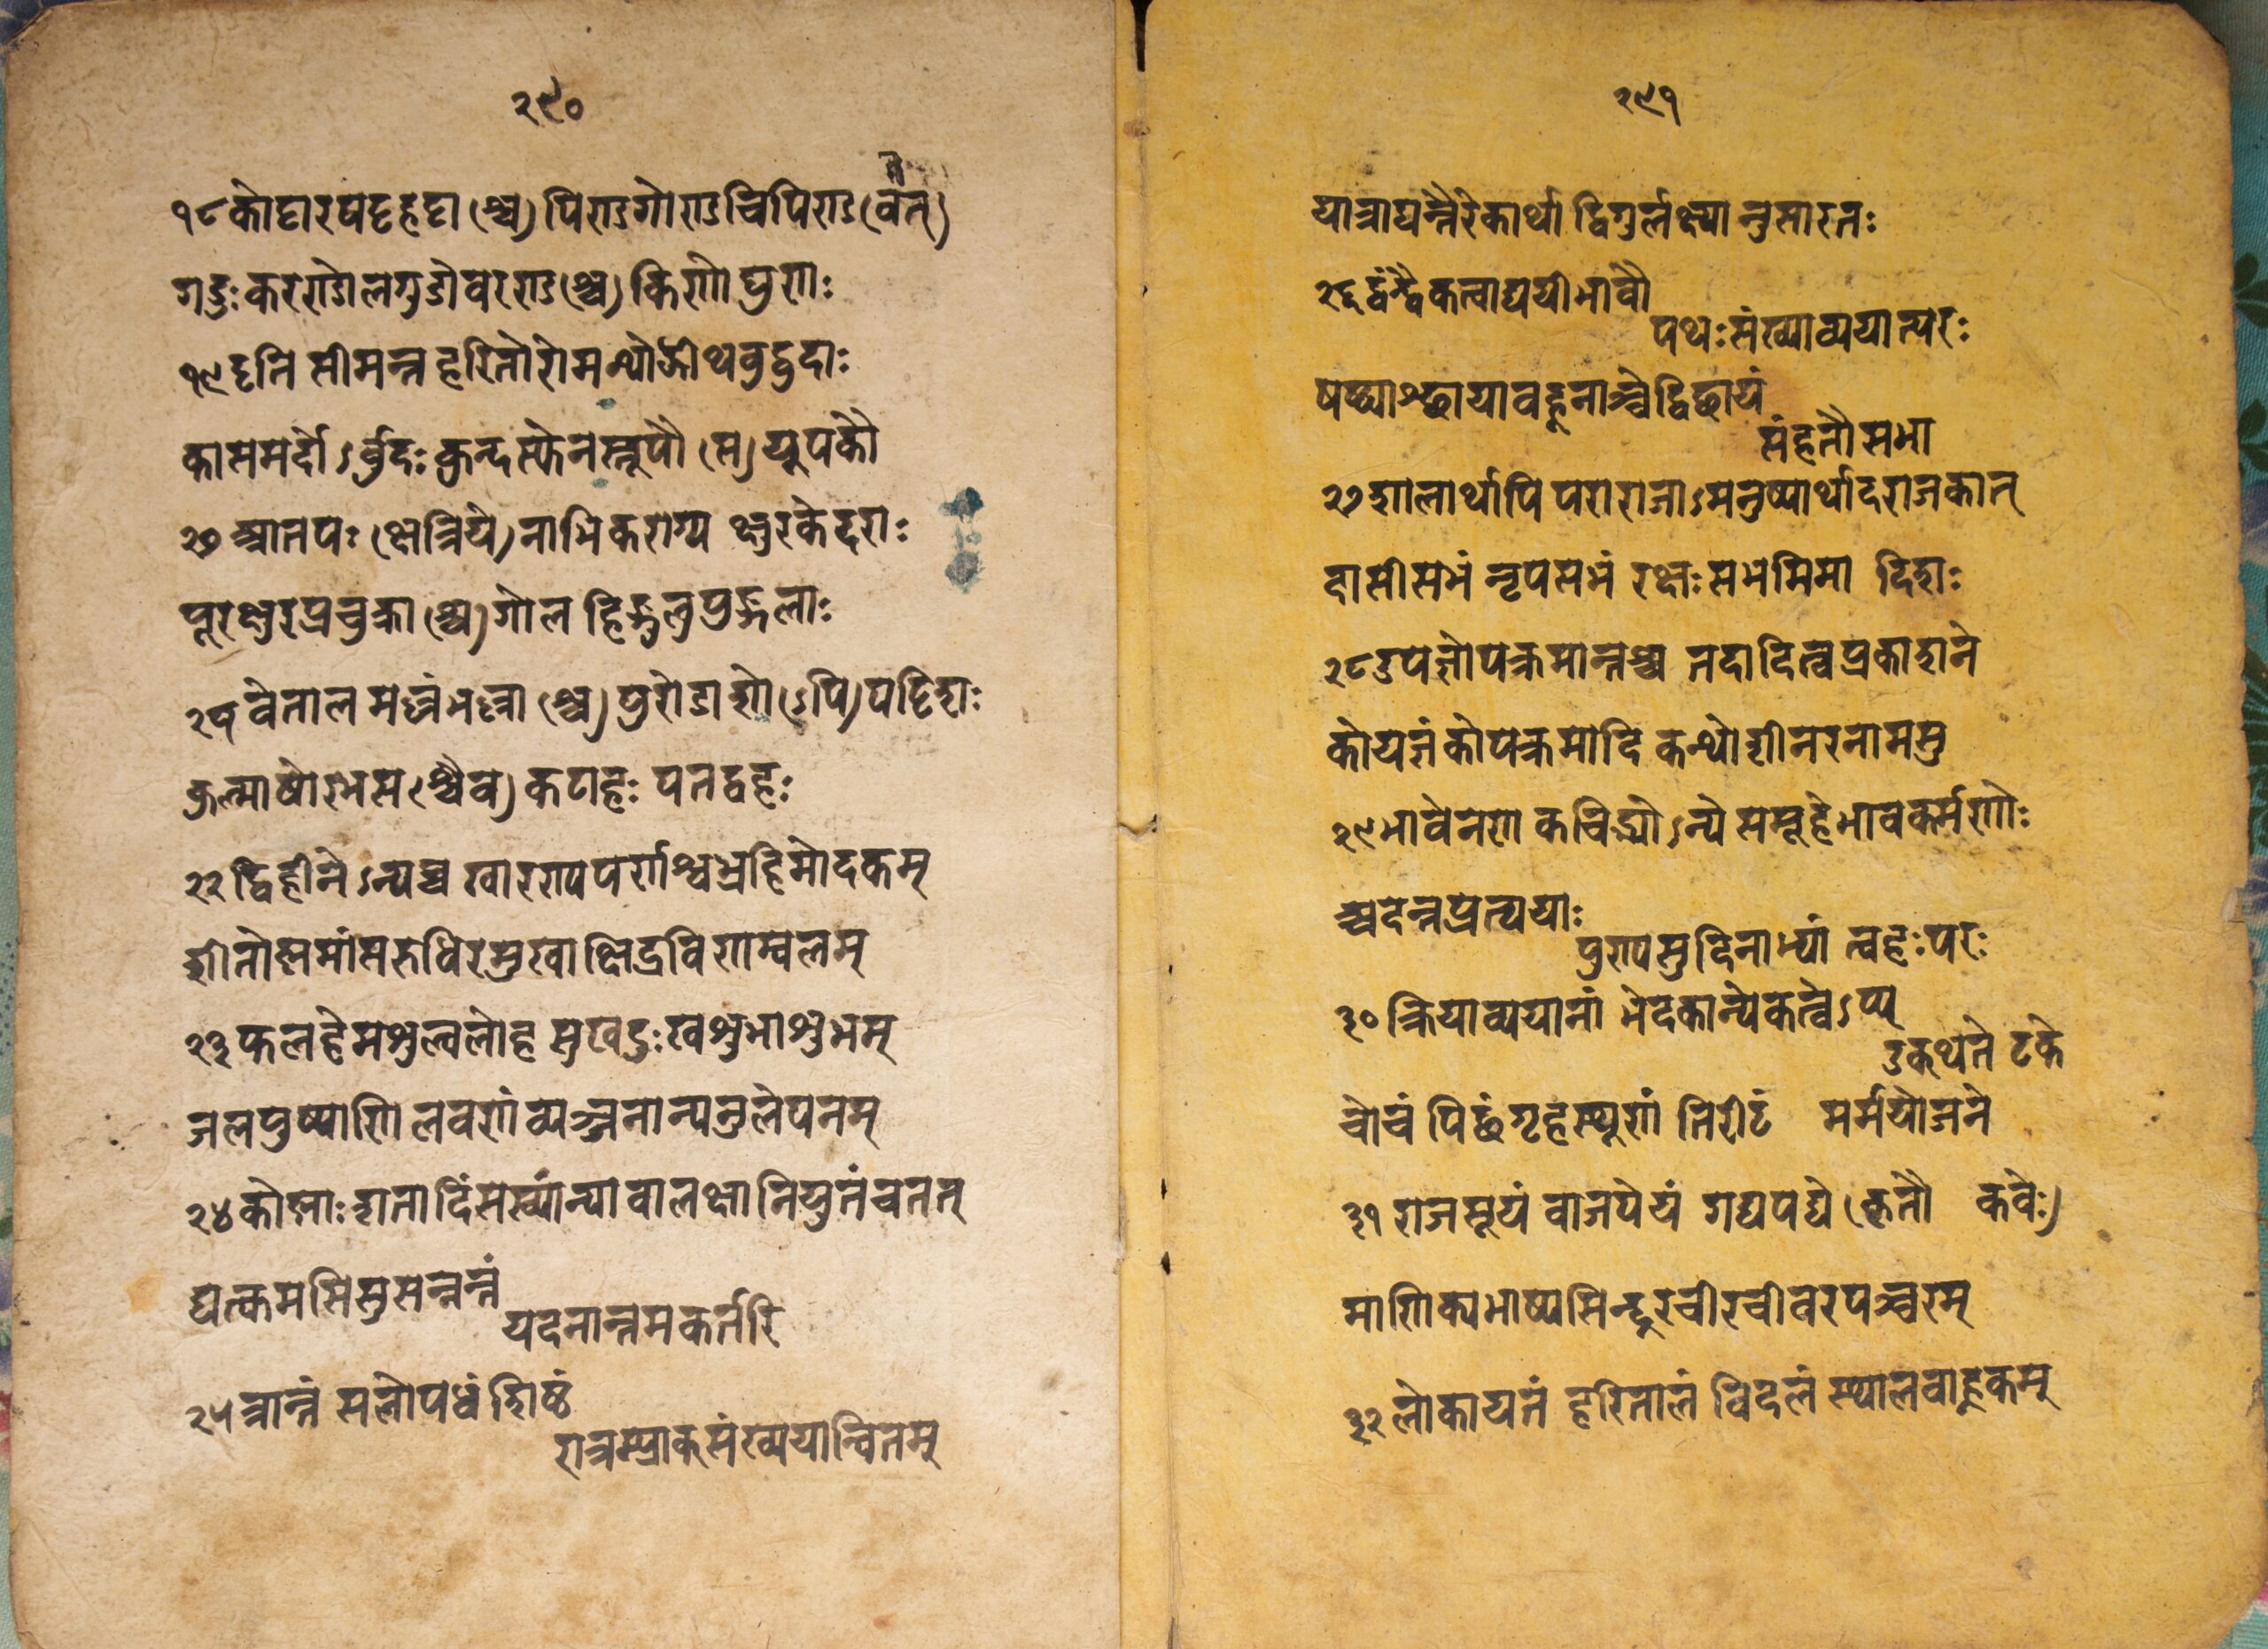 २९०
१८ कोट्टारघट्टहट्टा (श्च) पिण्डगोण्डचिपिण्ड (वत्)
गडुः करण्डोलगुडोवरण्ड (श्च) किणोघुणः
१९ दृति सीमन्त हरितोरोमन्थोद्गीथवुद्वुदाः
कासमर्दोऽर्वुदः कुन्दस्फेनस्तूपौ (स) यूपकौ
२० आतपः (क्षत्रिये) नाभिकणप्य क्षुरकेदराः
पूरक्षुरप्रचुक्रा (श्च) गोल हिङ्गुलुपुद्गलाः
२१ वेताल मल्लभल्ला (श्च) पुरोडाशो (ऽपि) पट्टिशः
कुल्माषोरभस (श्चैव) कटाहः पतद्ग्रहः
२२ द्विहीनेऽन्यच्च खारण्यपर्णश्वभ्रहिमोदकम्
शीतोष्णमांसरुधिरमुखाक्षिद्रविणम्वलम्
२३ फलहेमशुल्वलोह सुखदुःखशुभाशुभम्
जलपुष्पाणि लवणं व्यञ्जनान्यनुलेपनम्
२४ कोट्याः शतादिसंख्यान्यावालक्षानियुतंचतत्
द्व्यत्कमसिसुसन्नन्तं
यदनान्तमकर्तरि
२५ त्रान्तं सलोपधं शिष्टं
रात्रम्प्राक् संख्ययान्वितम्
२९१
पात्राद्यन्तैरेकार्थो द्विगुर्लक्ष्यानुसारतः
२६ द्वंद्वैकत्वाव्ययीभावौ
पथः संख्याव्ययात्परः
षष्ठ्याश्छायावहूनाञ्चेद्विछायं
संहतौसभा
२७ शालार्थापि पराराजाऽमनुष्यार्थादराजकात्
दासीसभं नृपसभं रक्षःसभमिमा दिशः
२८ उपज्ञोपक्रमान्तश्च तदादित्वप्रकाशने
कोपज्ञंकोपक्रमादि कन्थोशीनरनामसु
२९ भावेनणकचिद्भ्योऽन्ये समूहेभावकर्मणोः
अदन्तप्रत्ययाः
पुण्यसुदिनाभ्यां त्वहःपरः
३० क्रियाव्ययानां भेदकान्येकत्वेऽप्य्
उक्थतोटके
चोचं पिछंगृहस्थूणं तिरीटं मर्मयोजने
३१ राजसूयं वाजपेयं गद्यपद्ये (कृतौ कवेः)
माणिक्यभाष्यसिन्दूरचीरचीवरपञ्जरम्
३२ लोकायतं हरितालं विदलं स्थालवाहूकम्